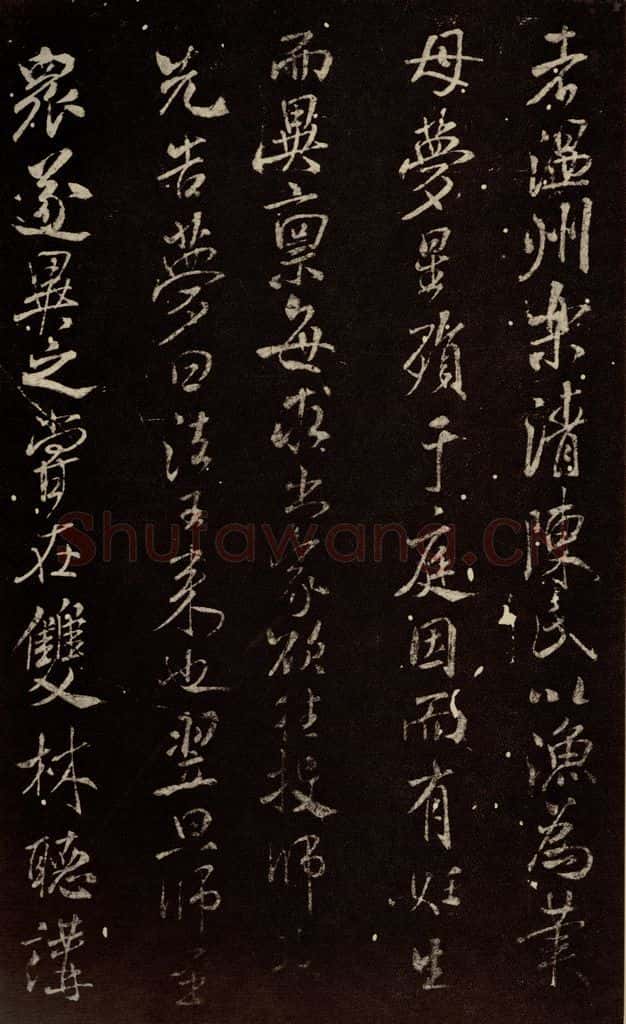 者溫州樂清陳氏以漁為業
母夢星殞于庭因而有妊生
而異稟每求出家欲往投師
先告夢曰法王來也翌旦師至
眾遂異之嘗在雙林聽講
Shufawang.CN